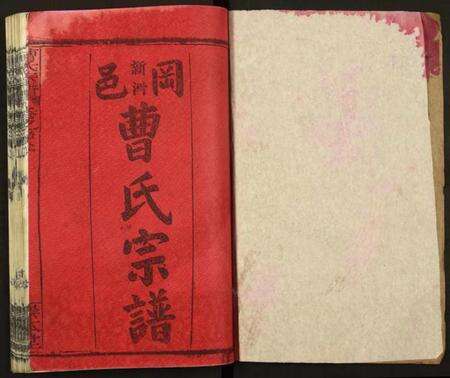 岡邑
新洲
曹氏宗譜